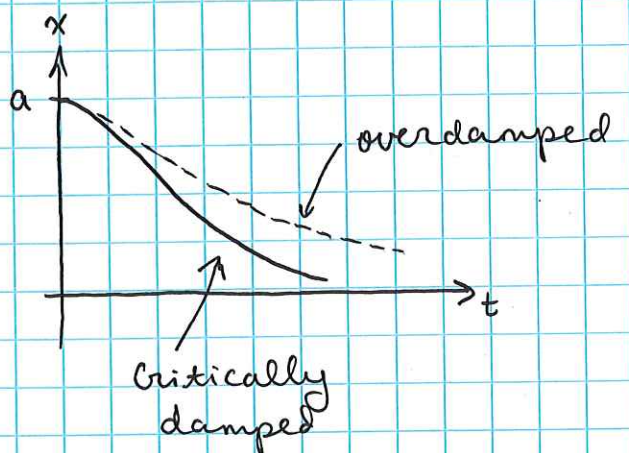 x
a
overdamped
t
Critically
damped